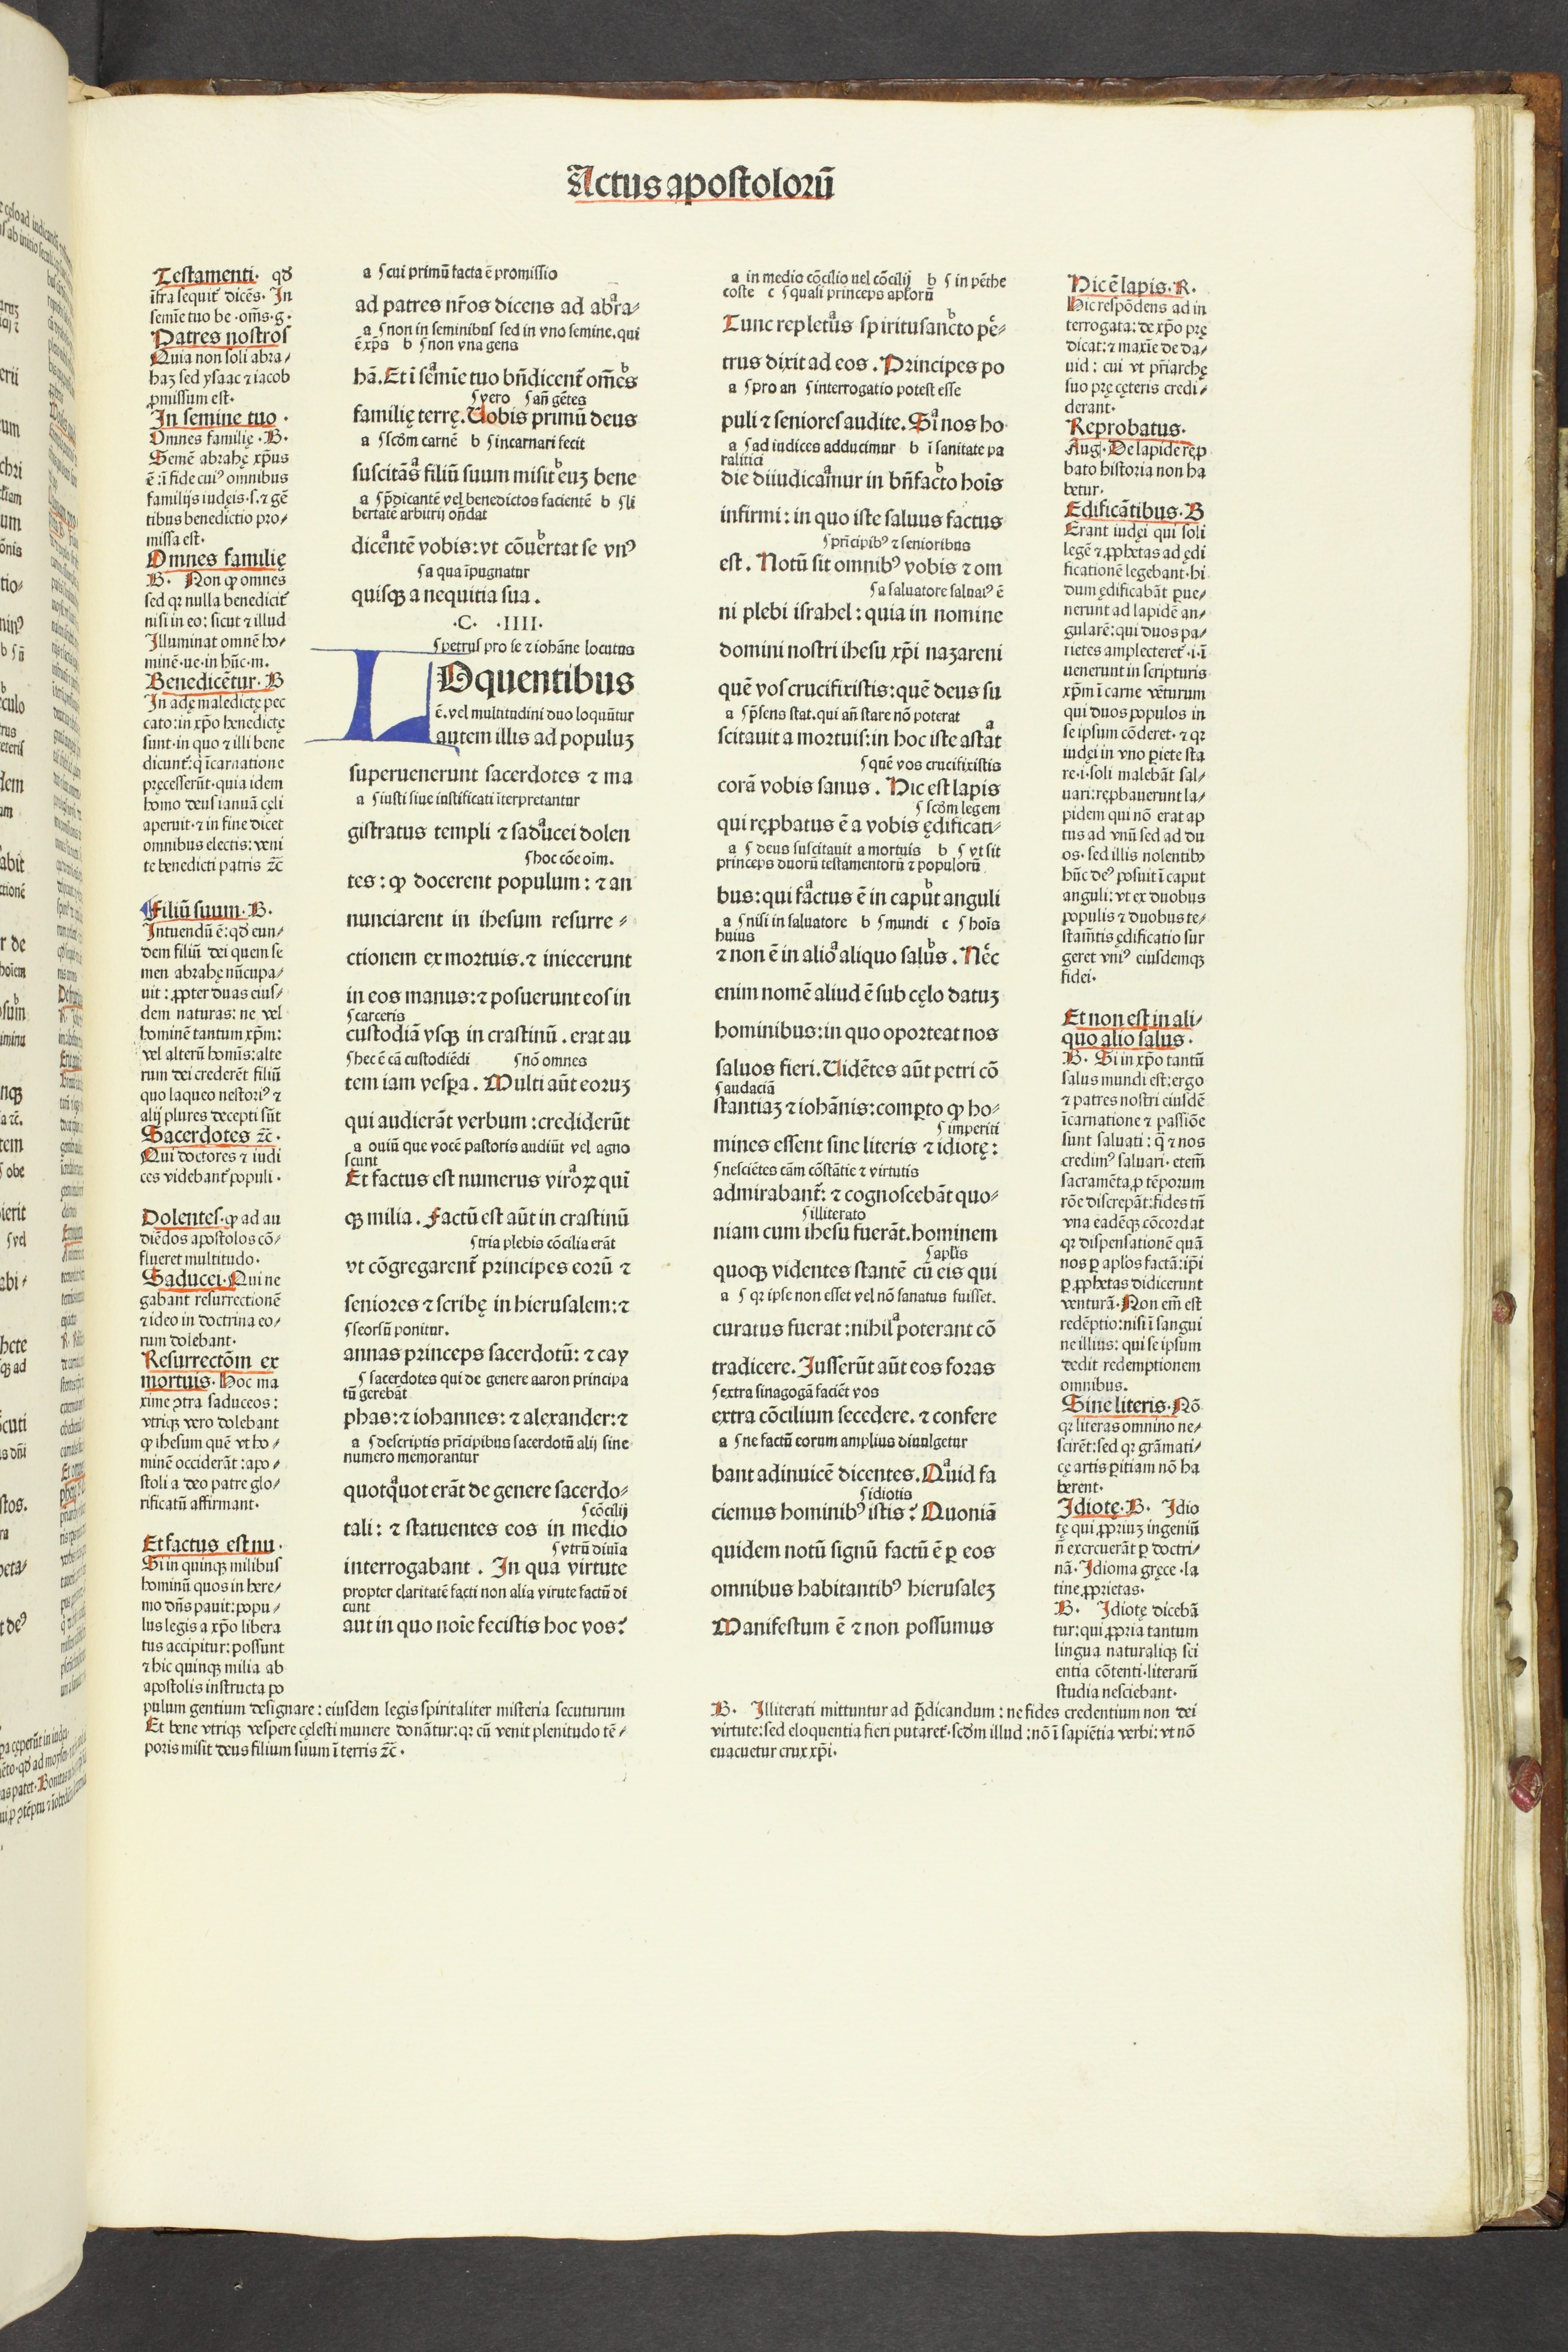 Actus apostoloꝝ̄
Testamenti· qđ
īfra sequit᷑ dicēs· In
semīe tuo be ·om̄s·g·
Patres nostros
Quia non soli abra/
haꝫ sed ysaac ⁊ iacob
ꝓmissum est·
In semine tuo ·
Omnes familię ·B·
Semē abrahę xp̄us
ē :ī fide cuiꝰ omnibus
familijs iudęis·s·⁊ gē
tibus benedictio pro/
missa est·
Omnes familię
B· Non ꝙ omnes
sed qꝛ nulla benedicit᷑
nisi in eo: sicut ⁊ illud
Illuminat omnē ho/
minē·ue·in hūc·m·
Benedicētur· B
In adę maledictę pec
cato:in xp̄o benedictę
sunt·in quo ⁊ illi bene
dicunt᷑:q̄ īcarnatione
pręcesserūt·quia idem
homo deus ianuā cęli
aperuit·⁊ in fine dicet
omnibus electis: veni
te benedicti patris ⁊c̄
Filiū suum·B·
Intuendū ē:qđ eun/
dem filiū dei quem se
men abrahę nūcupa/
uit : ꝓpter duas eius/
dem naturas: ne vel
hominē tantum xp̄m:
vel alterū homīs:alte
rum dei crederēt filiū
quo laqueo nestoriꝰ ⁊
alij plures decepti sūt
Sacerdotes ⁊c̄·
Qui doctores ⁊ iudi
ces videbant᷑ populi ·
Dolentes·ꝙ ad au
diēdos apostolos cō/
flueret multitudo·
Saducei·Qui ne
gabant resurrectionē
⁊ ideo in doctrina eo/
rum dolebant·
Resurrectōm ex
mortuis· Hoc ma
xime ꝯtra saduceos:
vtriqꝫ vero dolebant
ꝙ ihesum quē vt ho/
minē occiderāt :apo/
stoli a deo patre glo/
rificatū affirmant·
Et factus est nu·
Si in quinqꝫ milibus
hominū quos in here/
mo dn̄s pauit:popu/
lus legis a xp̄o libera
tus accipitur: possunt
⁊ hic quinqꝫ milia ab
apostolis instructa po
pulum gentium designare : eiusdem legis spiritaliter misteria secuturum
Et bene vtriqꝫ vespere cęlesti munere donātur:qꝛ cū venit plenitudo tē/
poris misit deus filium suum ī terris ⁊c̄·
a ſcui primū facta ē promissio
ad patres nr̄os dicens ad abra-
a ſnon in seminibus sed in vno semine.qui
ē xp̄s b ſnon vna gens
hā.Et ī semīe tuo bn̄dicent᷑ om̄es
ſvero ſan̄ gētes
familię terrę.Uobis primū deus
a ſscđm carnē b ſincarnari fecit
suscitās filiū suum misit euꝫ bene
a ſp̄dicantē vel benedictos facientē b ſli
bertatē arbitrij on̄dat
dicētē vobis:vt cōuertat se vnꝰ
ſa qua īpugnatur
quisqꝫ a nequitia sua.
·C· ·IIII·
ſpetrus pro se ⁊ iohāne locutus
LOquentibus
ē.vel multitudini duo loquūtur
autem illis ad populuꝫ
superuenerunt sacerdotes ⁊ ma
a ſiusti siue iustificati īterpretantur
gistratus templi ⁊ saducei dolen
ſhoc cōe oīm.
tes: ꝙ docerent populum: ⁊ an
nunciarent in ihesum resurre-
ctionem ex mortuis.⁊ iniecerunt
in eos manus:⁊ posuerunt eos in
ſcarceris
custodiā vsqꝫ in crastinū.erat au
ſhec ē cā custodiēdi ſnō omnes
tem iam vespa. Multi aūt eoruꝫ
qui audierāt verbum:crediderūt
a ouiū que vocē pastoris audiūt vel agno
scunt
Et factus est numerus viroꝝ qui
qꝫ milia. Factū est aūt in crastinū
ſtria plebis cōcilia erāt
vt cōgregarent᷑ principes eorū ⁊
seniores ⁊ scribę in hierusalem:⁊
ſseorsū ponitur.
annas princeps sacerdotū: ⁊ cay
ſ sacerdotes qui de genere aaron principa
tū gerebāt
phas:⁊ iohannes: ⁊ alexander:⁊
a ſdescriptis prīcipibus sacerdotū alij sine
numero memorantur
quotquot erāt de genere sacerdo-
ſcōcilij
tali: ⁊ statuentes eos in medio
ſvtrū diuīa
interrogabant. In qua virtute
propter claritatē facti non alia virute factū di
cunt
aut in quo noīe fecistis hoc vos?
a in medio cōcilio uel cōcilij b ſ in pēthe
coste c ſquasi princeps apl̄orū
Tunc repletus spiritusancto pe-
trus dixit ad eos. Principes po
a ſpro an ſinterrogatio potest esse
puli ⁊ seniores audite. Si nos ho
a ſad iudices adducimur b ī sanitate pa
ralitici
die diiudicamur in bn̄facto hoīs
infirmi: in quo iste saluus factus
ſprīcipibꝰ ⁊ senioribus
est. Notū sit omnibꝰ vobis ⁊ om
ſa saluatore saluatꝰ ē
ni plebi israhel: quia in nomine
domini nostri ihesu xp̄i nazareni
quē vos crucifixistis:quē deus su
a ſp̄sens stat.qui an̄ stare nō poterat
scitauit a mortuis:in hoc iste astat
ſquē vos crucifixistis
corā vobis sanus. Hic est lapis
ſ scđm legem
qui reꝓbatus ē a vobis ędificati-
a ſ deus suscitauit a mortuis b ſ vt sit
princeps duorū testamentorū ⁊ populorū
bus:qui factus ē in caput anguli
a ſnisi in saluatore b ſmundi c ſhoīs
huius
⁊ non ē in alio aliquo salus. Nec
enim nomē aliud ē sub cęlo datuꝫ
hominibus:in quo oporteat nos
saluos fieri.Uidētes aūt petri cō
ſaudaciā
stantiaꝫ ⁊ iohānis:comꝑto ꝙ ho-
ſimperiti
mines essent sine literis ⁊ idiotę:
ſnesciētes cām cōstātie ⁊ virtutis
admirabant᷑: ⁊ cognoscebāt quo-
ſilliterato
niam cum ihesu fuerāt.hominem
ſapl̄is
quoqꝫ videntes stantē cū eis qui
a ſ qꝛ ipse non esset vel nō sanatus fuisset.
curatus fuerat:nihil poterant cō
tradicere. Iusserūt aūt eos foras
ſextra sinagogā faciēt vos
extra cōcilium secedere. ⁊ confere
a ſne factū eorum amplius diuulgetur
bant adinuicē dicentes. Quid fa
ſidiotis
ciemus hominibꝰ istis? Quoniā
quidem notū signū factū ē ꝑ eos
omnibus habitantibꝰ hierusaleꝫ
Manifestum ē ⁊ non possumus
Hic ē lapis· R·
Hic respōdens ad in
terrogata: de xp̄o prę
dicat:⁊ maxīe de da/
uid : cui vt pr̄iarchę
suo prę cęteris credi/
derant·
Reprobatus·
Aug· De lapide reꝓ
bato historia non ha
betur·
Edificātibus·B
Erant iudęi qui soli
legē ⁊ ꝓphetas ad ędi
ficationē legebant·hi
dum ędificabāt ꝑue/
nerunt ad lapidē an/
gularē:qui duos pa/
rietes amplecteret᷑·i·ī
uenerunt in scripturis
xp̄m ī carne vēturum
qui duos populos in
se ipsum cōderet· ⁊ qꝛ
iudęi in vno ꝑiete sta
re·i·soli malebāt sal/
uari:reꝓbauerunt la/
pidem qui nō erat ap
tus ad vnū sed ad du
os· sed illis nolentibꝰ
hūc deꝰ posuit ī caput
anguli: vt ex duobus
populis ⁊ duobus te/
stam̄tis ędificatio sur
geret vniꝰ eiusdemqꝫ
fidei·
Et non est in ali/
quo alio salus ·
B· Si in xp̄o tantū
salus mundi est:ergo
⁊ patres nostri eiusdē
īcarnatione ⁊ passiōe
sunt saluati : q̄ ⁊ nos
credimꝰ saluari· etem̄
sacramēta ꝓ tēporum
rōe discrepāt:fides tn̄
vna eadēqꝫ cōcordat
qꝛ dispensationē quā
nos ꝑ apl̄os factā:ip̄i
ꝑ ꝓphetas didicerunt
venturā·Non em̄ est
redēptio:nisi ī sangui
ne illius: qui se ipsum
dedit redemptionem
omnibus.
Sine literis·Nō
qꝛ literas omnino ne/
scirēt:sed qꝛ grāmati/
cę artis ꝑitiam nō ha
berent·
Idiotę·B· Idio
tę qui ꝓpriuꝫ ingeniū
n̄ exercuerāt ꝑ doctri/
nā· Idioma gręce ·la
tine ꝓprietas·
B· Idiotę dicebā
tur:qui ꝓpria tantum
lingua naturaliqꝫ sci
entia cōtenti·literarū
studia nesciebant·
B· Illiterati mittuntur ad p̄dicandum : ne fides credentium non dei
virtute:sed eloquentia fieri putaret᷑·scđm illud :nō ī sapiētia verbi: vt nō
euacuetur crux xp̄i·